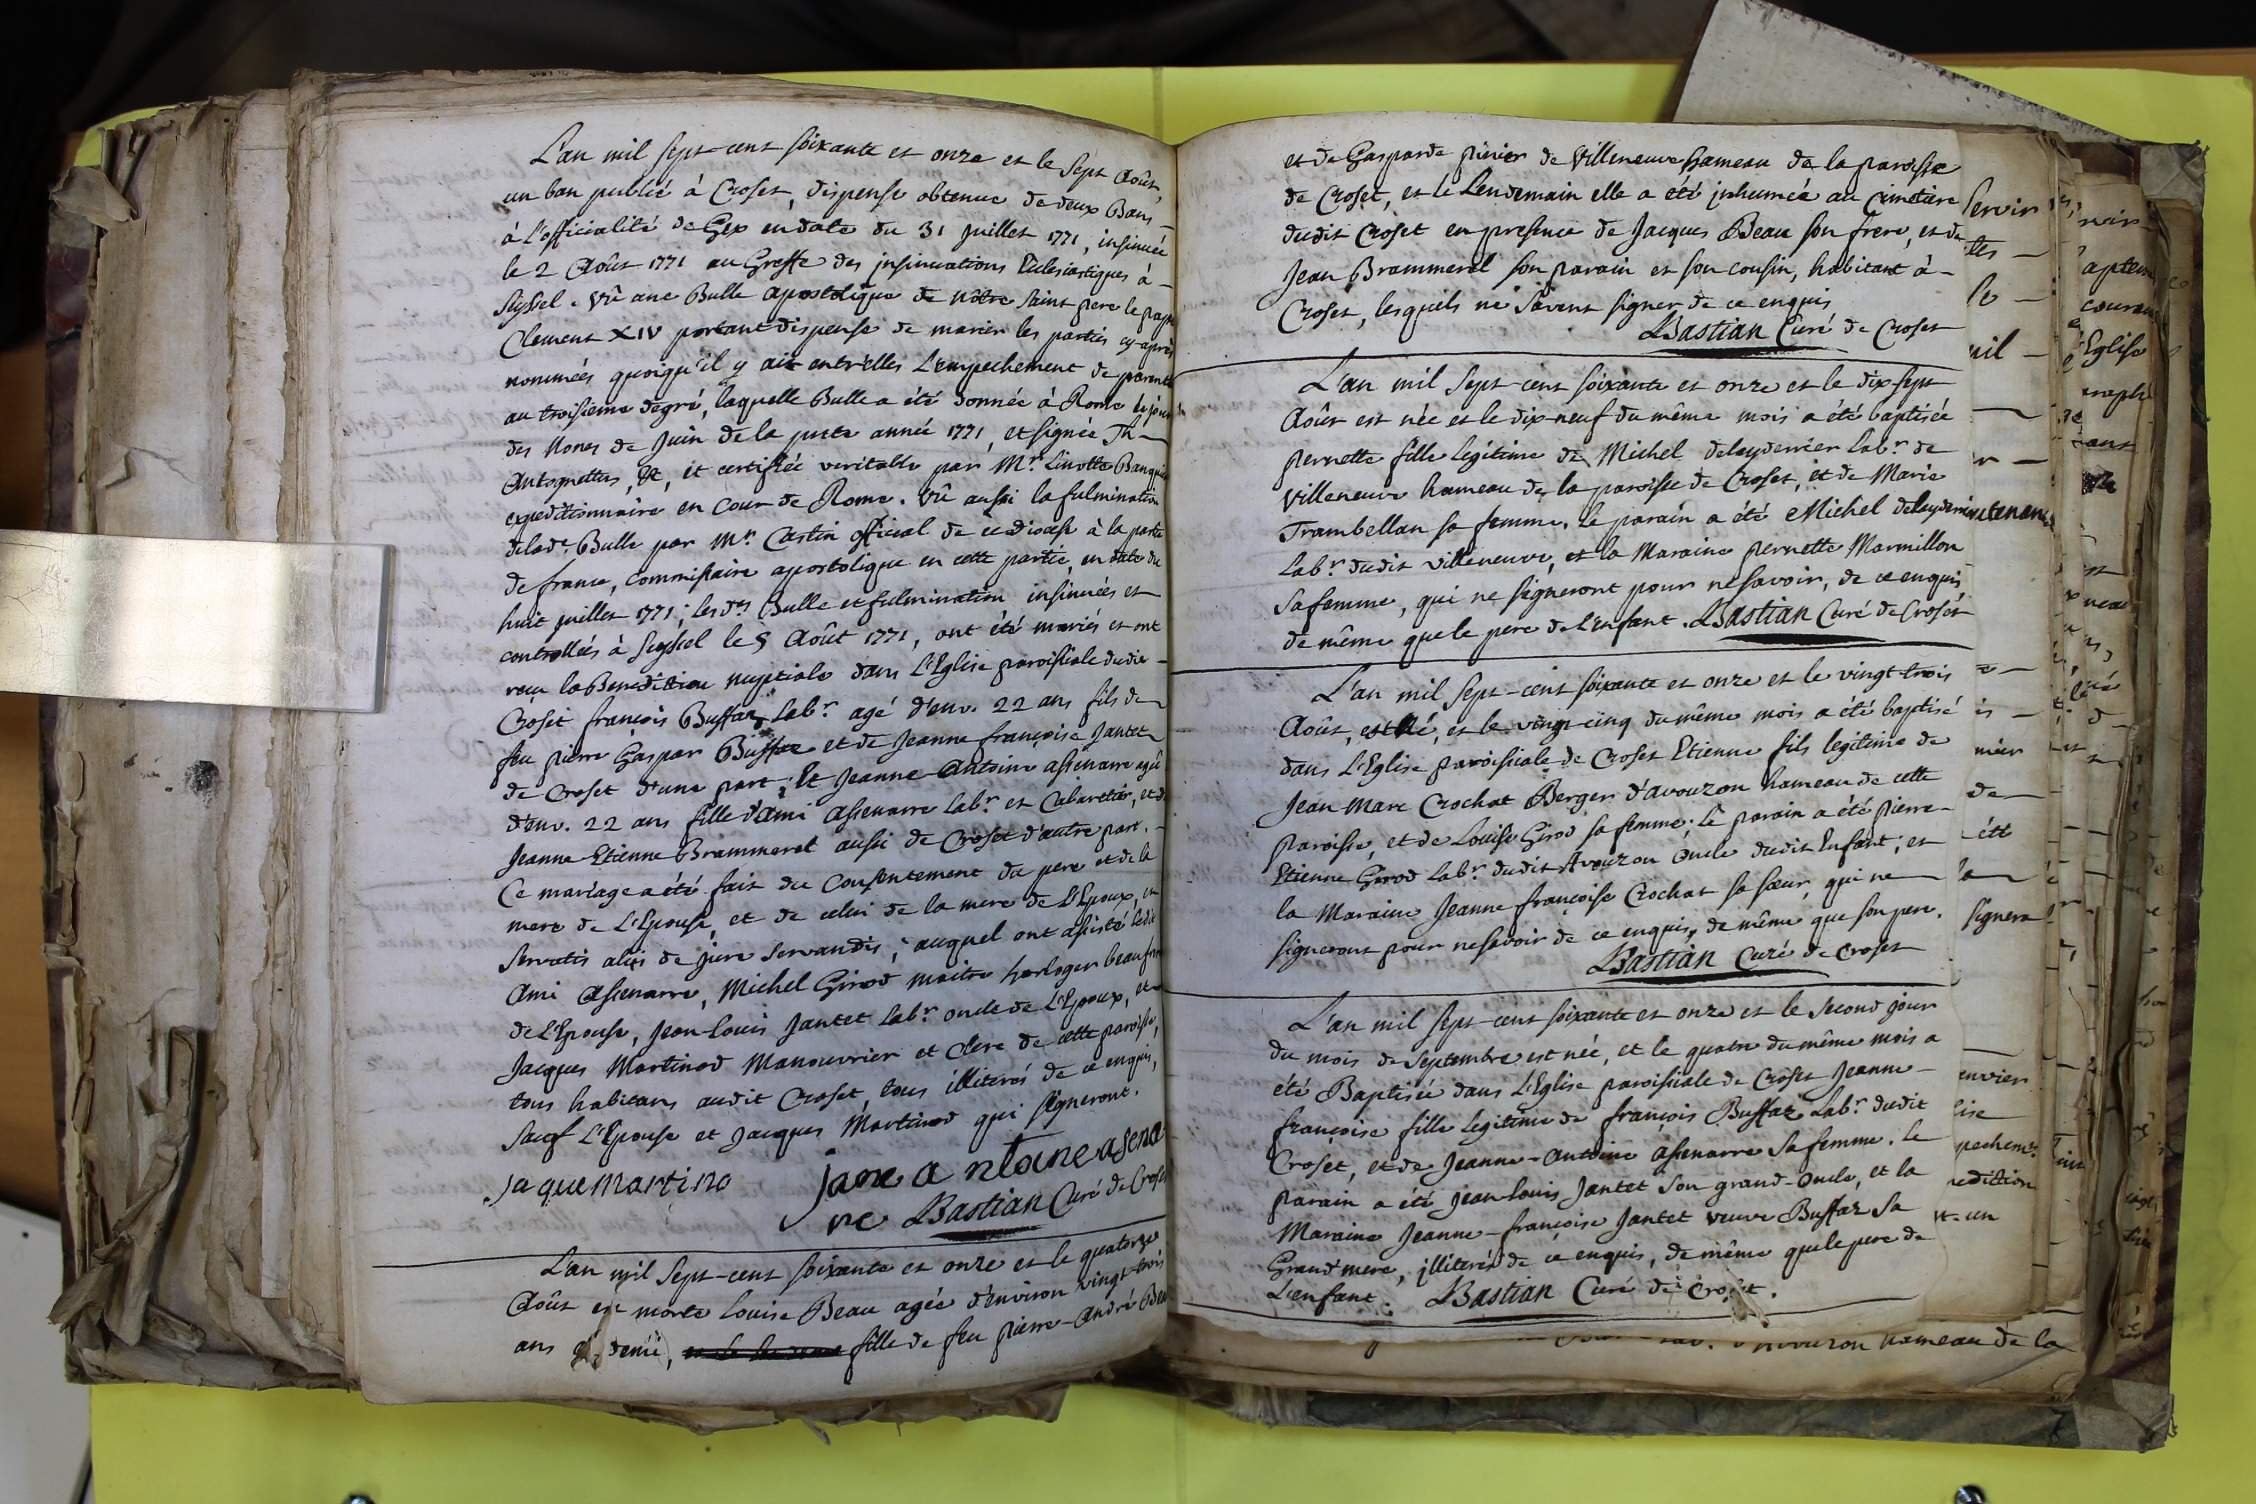 L'an mil sept-cent soixante et onze et le sept Août,
un ban publié à Croset, dispense obtenue de deux Bans -
à l'officialité de Gex en date du 31 juillet 1771, insinuée
le 2 Août 1771 au Greffe des insinuations Eclesiastiques à -
Seyssel. Vû une Bulle apostolique de nôtre saint pere le pape
Clement XIV portant dispense de marier les parties cy-après
nommées quoiqu'il y ait entr'elles L'empechement de parenté
au troisieme degré, laquelle Bulle a été donnée à Rome le jour
des Nones de Juin de la pnte année 1771, et signée Th-
Antognettus, &, et certifiée veritable par Mr. Linotte Banquier
expeditionnaire en Cour de Rome. Vû aussi la fulmination
delade. Bulle par Mr. Castin official de ce diocese à la partie
de france, Commissaire apostolique en cette partie, en date du
huit juillet 1771; Lesdes Bulle et fulmination insinuées et
controllées à Seyssel le 5 Août 1771, ont été mariés et ont
reçu la Benediction nuptiale dans L'Eglise paroissiale dudit -
Croset françois Buffaz Labr. agé d'env. 22 ans fils de
feu pierre Gaspar Buffaz et de Jeanne françoise Jantet
de Croset d'une part; Et Jeanne-Antoine assenarre agée
d'env. 22 ans fille d'Ami assenarre Labr. et Cabaretier, et de
Jeanne-Etienne Brammerel aussi de Croset d'autre part. -
Ce mariage a été fait du Consentement du pere et de la
mere de L'Epouse, et de celui de la mere de L'Epoux, et
servatis aliis de jure servandis; auquel ont assisté ledit
Ami Assenarre, Michel Girod maitre horloger beaufrere
de L'Epouse, Jean-Louis Jantet Labr. oncle de L'Epoux, et
Jacques Martinod Manouvrier et Clerc de cette paroisse,
tous habitans audit Croset, tous illiterés de ce enquis,
sauf L'Epouse et Jacques Martinod qui signeront.
Jaque martino jane a ntoine asena
re Bastian Curé de Croset
L'an mil Sept-cent soixante et onze et le quatorze
Août est morte Louise Beau agée d'environ vingt-trois
ans et demi, fille de feu pierre-André Beau
et de Gasparde pirier de Villeneuve hameau de la paroisse
de Croset, et le Lendemain elle a été inhumée au Cimetiere
dudit Croset en presence de Jacques Beau son frere, et de
Jean Brammerel son parain et son cousin, habitant à -
Croset, lesquels ne savent signer de ce enquis
Bastian Curé de Croset
L'an mil Sept-cent soixante et onze et le dix sept
Août est née et le dix-neuf du même mois a été baptisée
pernette fille légitime de Michel deleyderrier Labr. de
Villeneuve hameau de la paroisse de Croset, et de Marie
Trambellan sa femme. Le parain a été Michel deleyderrier
Labr. dudit villeneuve, et la Maraine pernette Marmillon
sa femme, qui ne signeront pour ne savoir, de ce enquis,
de même que le pere de L'enfant. Bastian Curé de Croset
L'an mil sept-cent soixante et onze et le vingt trois
Août, est né, et le vingt-cinq du même mois a été baptisé
dans L'Eglise paroissiale de Croset Etienne fils legitime de
Jean Marc Crochat Berger d'avouzon hameau de cette
paroisse, et de Louise Girod sa femme; Le parain a été pierre-
Etienne Girod Labr. dudit Avouzon oncle dudit Enfant; et
la Maraine Jeanne françoise Crochat sa sœur, qui ne
signeront pour ne savoir de ce enquis, de même que son pere.
Bastian Curé de Croset
L'an mil sept-cent soixante et onze et le second jour
du mois de Septembre est née, et le quatre du même mois a
été Baptisée dans L'Eglise paroissiale de Croset Jeanne-
françoise fille legitime de françois Buffaz Labr. dudit
Croset, et de Jeanne-Antoine Assenarre sa femme. Le
parain a été jean-louis Jantet son grand-oncle, et la
Maraine Jeanne-françoise Jantet veuve Buffaz sa
Grand'mere, illiterés de ce enquis, de même que le pere de
L'enfant. Bastian Curé de Croset.
hameau de la